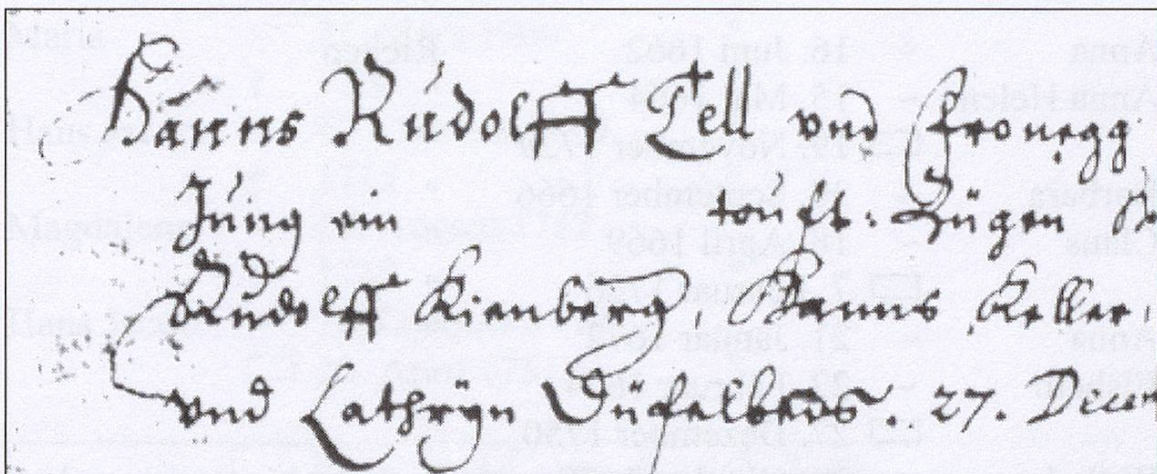 Hanns Rudolff Tell vnd Fronegg
Jung ein touft: Zügen
Rudolff Kienberg, Hanns Keller,
vnd Cathryn 27. Decem